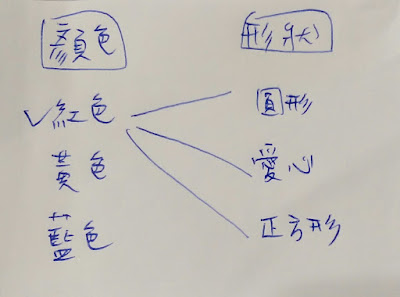 顏色 形狀
✓紅色 圓形
黃色 愛心
藍色 正方形